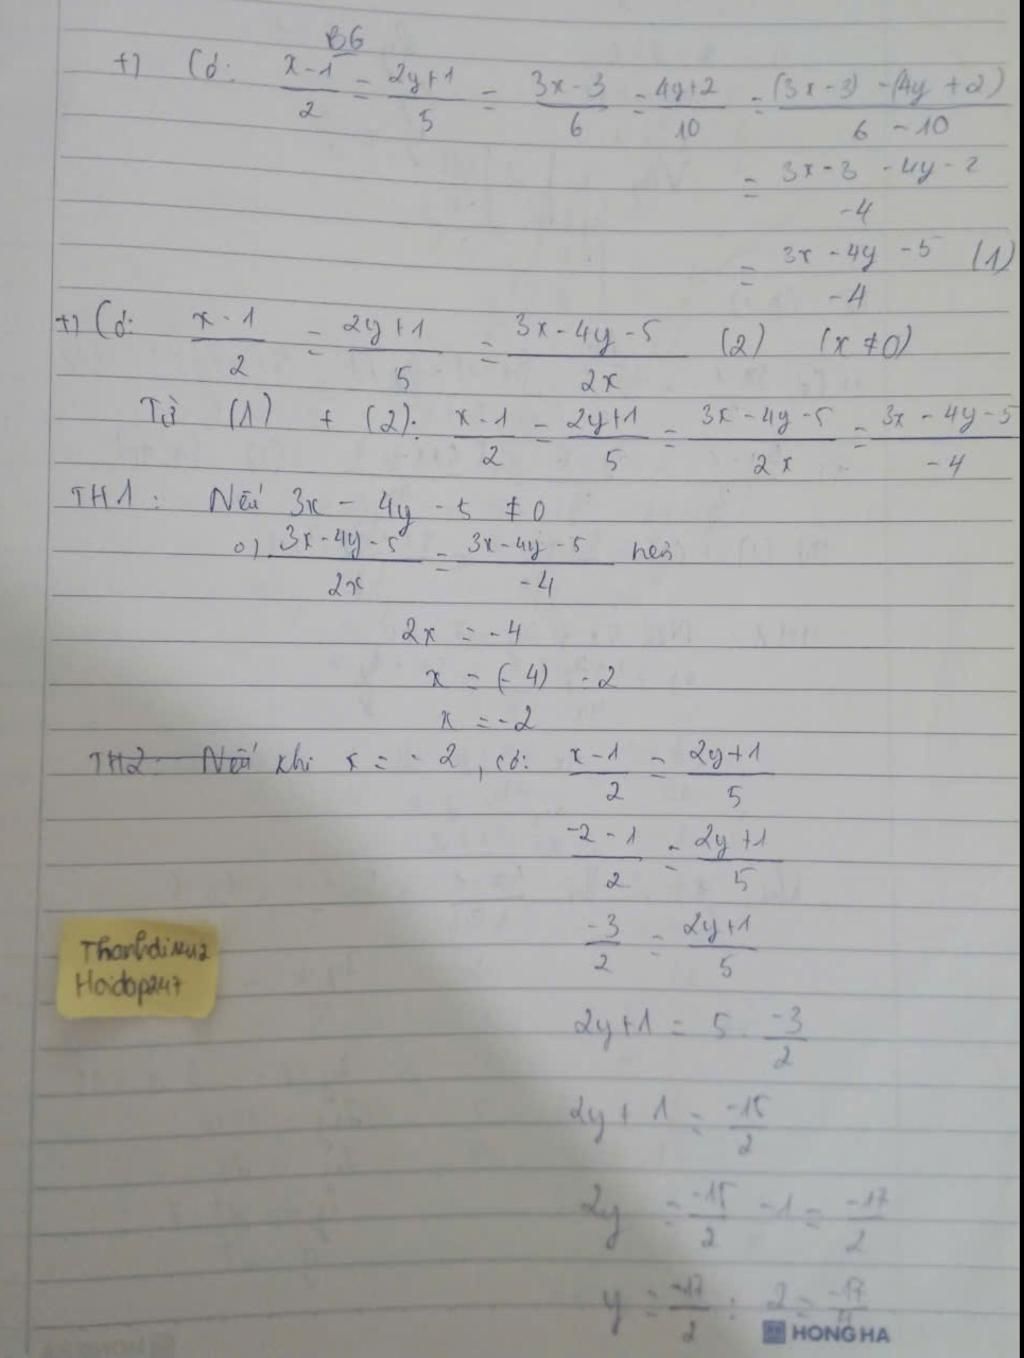 BG
+) Có: x-1/2 = 2y+1/5 = 3x-3/6 = 4y+2/10 = (3x-3)-(4y+2)/6-10
= 3x-3-4y-2/-4
= 3x-4y-5/-4 (1)
+) Có: x-1/2 = 2y+1/5 = 3x-4y-5/2x (2) (x≠0)
Từ (1) + (2): x-1/2 = 2y+1/5 = 3x-4y-5/2x = 3x-4y-5/-4
TH1: Nếu 3x-4y-5 ≠ 0
o) 3x-4y-5/2x = 3x-4y-5/-4 nên
2x = -4
x = (-4) : 2
x = -2
TH2: Nếu khi x = -2, có: x-1/2 = 2y+1/5
-2-1/2 = 2y+1/5
-3/2 = 2y+1/5
Thanhdinuz
Hoidap247
2y+1 = 5 . -3/2
2y+1 = -15/2
2y = -15/2 - 1 = -17/2
y = -17/2 : 2 = -17/4
HONG HA